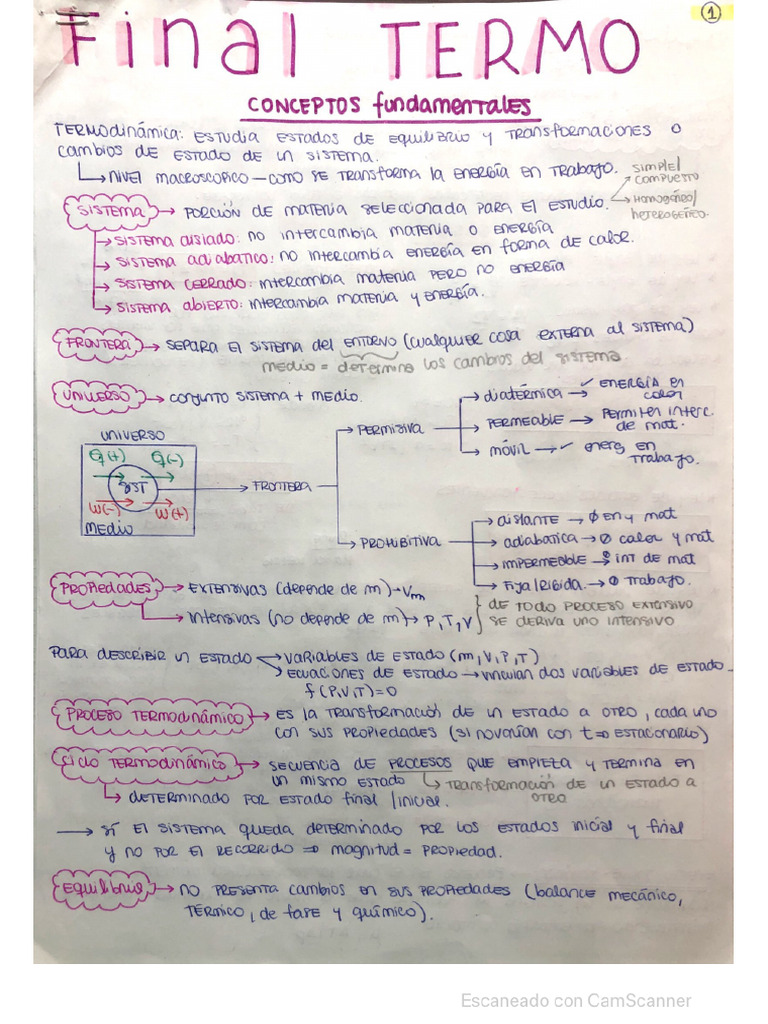 1
Final TERMO
CONCEPTOS fundamentales
TERMODINÁMICA: ESTUDIA ESTADOS DE EQUILIBRIO Y TRANSFORMACIONES O
CAMBIOS DE ESTADO DE UN SISTEMA.
NIVEL MACROSCÓPICO — COMO SE TRANSFORMA LA ENERGÍA EN TRABAJO.
SIMPLE/
COMPUESTO
SISTEMA → PORCIÓN DE MATERIA SELECCIONADA PARA EL ESTUDIO.
Homogéneo/
heterogéneo.
SISTEMA AISLADO: NO INTERCAMBIA MATERIA O ENERGÍA
SISTEMA ADIABATICO: NO INTERCAMBIA ENERGÍA EN FORMA DE CALOR.
SISTEMA CERRADO: INTERCAMBIA MATERIA PERO NO ENERGÍA
SISTEMA ABIERTO: INTERCAMBIA MATERIA Y ENERGÍA.
FRONTERA → SEPARA EL SISTEMA DEL ENTORNO (CUALQUIER COSA EXTERNA AL SISTEMA)
MEDIO = DETERMINA LOS CAMBIOS DEL SISTEMA.
UNIVERSO → CONJUNTO SISTEMA + MEDIO.
UNIVERSO
Q(+) Q(-)
SIST
W(-) W(+)
MEDIO
→ FRONTERA
→ PERMISIVA
→ diatérmica → ✓ ENERGÍA EN
CALOR
→ PERMEABLE → PERMITEN INTERC.
DE MAT.
→ MÓVIL → ✓ ENERG EN
TRABAJO.
→ PROHIBITIVA
→ aislante → ∅ EN Y MAT
→ adiabatica → ∅ CALOR Y MAT
→ IMPERMEABLE → ∅ INT DE MAT
→ FIJA/RÍGIDA → ∅ TRABAJO.
PROPIEDADES → EXTENSIVAS (DEPENDE DE m) → Vm
→ INTENSIVAS (NO DEPENDE DE m) → P, T, V
DE TODO PROCESO EXTENSIVO
SE DERIVA UNO INTENSIVO
PARA DESCRIBIR UN ESTADO → VARIABLES DE ESTADO (m, V, P, T)
→ ECUACIONES DE ESTADO → VINCULAN DOS VARIABLES DE ESTADO
f (P, V, T) = 0
PROCESO TERMODINÁMICO → ES LA TRANSFORMACIÓN DE UN ESTADO A OTRO, CADA UNO
CON SUS PROPIEDADES (SI NO VARÍAN CON t ⇒ ESTACIONARIO)
CICLO TERMODINÁMICO → SECUENCIA DE PROCESOS QUE EMPIEZA Y TERMINA EN
UN MISMO ESTADO → TRANSFORMACIÓN DE UN ESTADO A
OTRO
→ DETERMINADO POR ESTADO FINAL / INICIAL.
→ SI EL SISTEMA QUEDA DETERMINADO POR LOS ESTADOS INICIAL Y FINAL
Y NO POR EL RECORRIDO ⇒ MAGNITUD = PROPIEDAD.
Equilibrio → NO PRESENTA CAMBIOS EN SUS PROPIEDADES (BALANCE MECÁNICO,
TÉRMICO, DE FASE Y QUÍMICO).
Escaneado con CamScanner